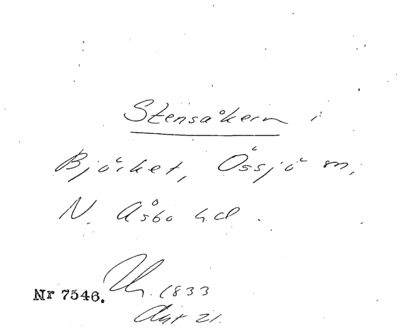 Stensåkern i
Björket, Össjö sn,
N. Åsbo hd.
Nr 7546. 1833
21.